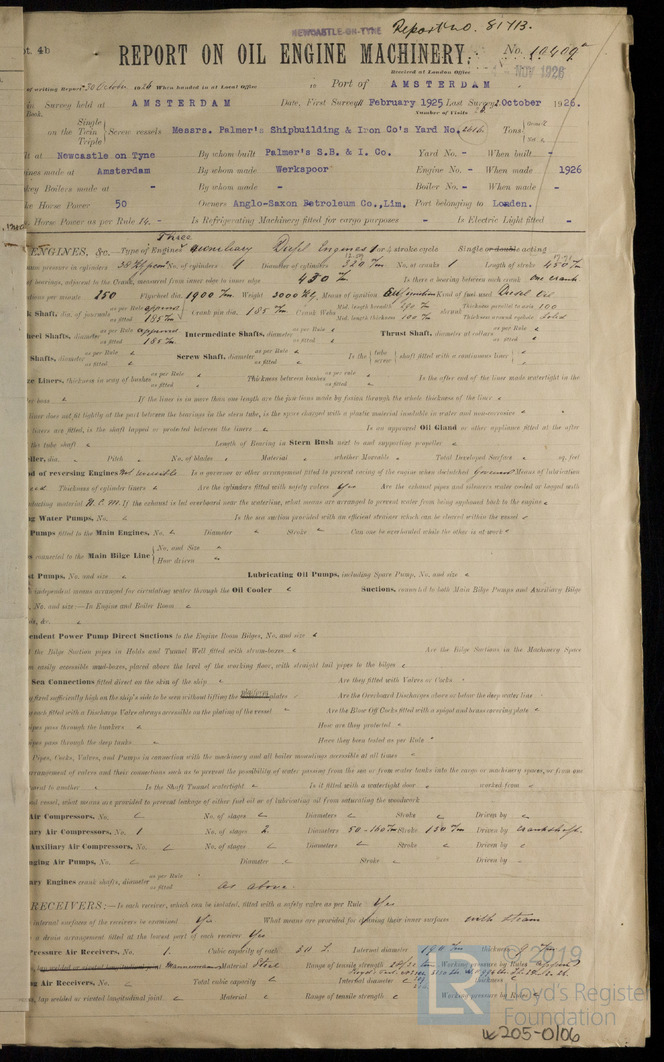 NEWCASTLE-ON-TYNE Report no. 81713.
pt. 4b REPORT ON OIL ENGINE MACHINERY. No. 10409a
Received at London Office
NOV 1926
of writing Report 30 October 1926 When handed in at Local Office Port of AMSTERDAM
in Survey held at AMSTERDAM Date, First Survey February 1925 Last Survey October 1926.
Book. Number of Visits
on the Single Twin Triple Screw vessels Messrs. Palmer's Shipbuilding & Iron Co's Yard No. Tons Gross Net
lt at Newcastle on Tyne By whom built Palmer's S.B. & I. Co. Yard No. - When built -
ines made at Amsterdam By whom made Werkspoor Engine No. - When made 1926
key Boilers made at - By whom made - Boiler No. - When made -
ke Horse Power 50 Owners Anglo-Saxon Petroleum Co., Lim. Port belonging to London.
Horse Power as per Rule 14. - Is Refrigerating Machinery fitted for cargo purposes - Is Electric Light fitted -
ENGINES, &c. Type of Engines Three auxiliary Diesel Engines 2 or 4 stroke cycle Single or double acting
pressure in cylinders No. of cylinders Diameter of cylinders 320 No. of cranks 1 Length of stroke 450
of bearings, adjacent to the Crank, measured from inner edge to inner edge 430 Is there a bearing between each crank one crank
per minute 250 Flywheel dia. 1900 Weight 3000 Kg. Means of ignition Kind of fuel used Diesel Oil
k Shaft, dia. of journals as per Rule approved as fitted 185 Crank pin dia. 185 Crank Webs Mid. length breadth Mid. length thickness 100 shrunk Thickness parallel to axis 100 Thickness around eyehole solid
heel Shafts, diameter as per Rule approved as fitted 185 Intermediate Shafts, diameter as per Rule as fitted Thrust Shaft, diameter at collars as per Rule as fitted
Shafts, diameter as per Rule as fitted Screw Shaft, diameter as per Rule as fitted Is the tube screw shaft fitted with a continuous liner
ze Liners, thickness in way of bushes as per Rule as fitted Thickness between bushes as per rule as fitted Is the after end of the liner made watertight in the
If the liner is in more than one length are the junctions made by fusion through the whole thickness of the liner
liner does not fit tightly at the part between the bearings in the stern tube, is the space charged with a plastic material insoluble in water and non-corrosive
liners are fitted, is the shaft lapped or protected between the liners Is an approved Oil Gland or other appliance fitted at the after
the tube shaft Length of Bearing in Stern Bush next to and supporting propeller
ller, dia. Pitch No. of blades Material whether Moveable Total Developed Surface sq. feet
od of reversing Engines Not reversible Is a governor or other arrangement fitted to prevent racing of the engine when declutched governor Means of lubrication
Thickness of cylinder liners Are the cylinders fitted with safety valves Yes Are the exhaust pipes and silencers water cooled or lagged with
nducting material If the exhaust is led overboard near the waterline, what means are arranged to prevent water from being syphoned back to the engine
ng Water Pumps, No. Is the sea suction provided with an efficient strainer which can be cleared within the vessel
Pumps fitted to the Main Engines, No. Diameter Stroke Can one be overhauled while the other is at work
connected to the Main Bilge Line No. and Size How driven
st Pumps, No. and size Lubricating Oil Pumps, including Spare Pump, No. and size
independent means arranged for circulating water through the Oil Cooler Suctions, connected to both Main Bilge Pumps and Auxiliary Bilge
, No. and size:—In Engine and Boiler Room
ds, &c.
endent Power Pump Direct Suctions to the Engine Room Bilges, No. and size
the Bilge Suction pipes in Holds and Tunnel Well fitted with strum-boxes Are the Bilge Suctions in the Machinery Space
easily accessible mud-boxes, placed above the level of the working floor, with straight tail pipes to the bilges
Sea Connections fitted direct on the skin of the ship Are they fitted with Valves or Cocks
y fixed sufficiently high on the ship's side to be seen without lifting the platform plates Are the Overboard Discharges above or below the deep water line
each fitted with a Discharge Valve always accessible on the plating of the vessel Are the Blow Off Cocks fitted with a spigot and brass covering plate
ipes pass through the bunkers How are they protected
ipes pass through the deep tanks Have they been tested as per Rule
Pipes, Cocks, Valves, and Pumps in connection with the machinery and all boiler mountings accessible at all times
rrangement of valves and their connections such as to prevent the possibility of water passing from the sea or from water tanks into the cargo or machinery spaces, or from one
ment to another Is the Shaft Tunnel watertight Is it fitted with a watertight door worked from
od vessel, what means are provided to prevent leakage of either fuel oil or of lubricating oil from saturating the woodwork
Air Compressors, No. No. of stages Diameters Stroke Driven by
ary Air Compressors, No. 1 No. of stages 2 Diameters Stroke 150 Driven by crankshaft.
Auxiliary Air Compressors, No. No. of stages Diameters Stroke Driven by
nging Air Pumps, No. Diameter Stroke Driven by
ary Engines crank shafts, diameter as per Rule as fitted as above.
RECEIVERS:—Is each receiver, which can be isolated, fitted with a safety valve as per Rule Yes
internal surfaces of the receivers be examined Yes What means are provided for cleaning their inner surfaces with steam
a drain arrangement fitted at the lowest part of each receiver Yes
Pressure Air Receivers, No. 1. Cubic capacity of each 50 l. Internal diameter thickness
lap welded or riveted longitudinal joint Material Steel Range of tensile strength Working pressure by Rules approved
ng Air Receivers, No. Total cubic capacity Internal diameter thickness
ss, lap welded or riveted longitudinal joint. Material Range of tensile strength Working pressure by Rules
© 2019
LR Lloyd's Register Foundation
W205-0106